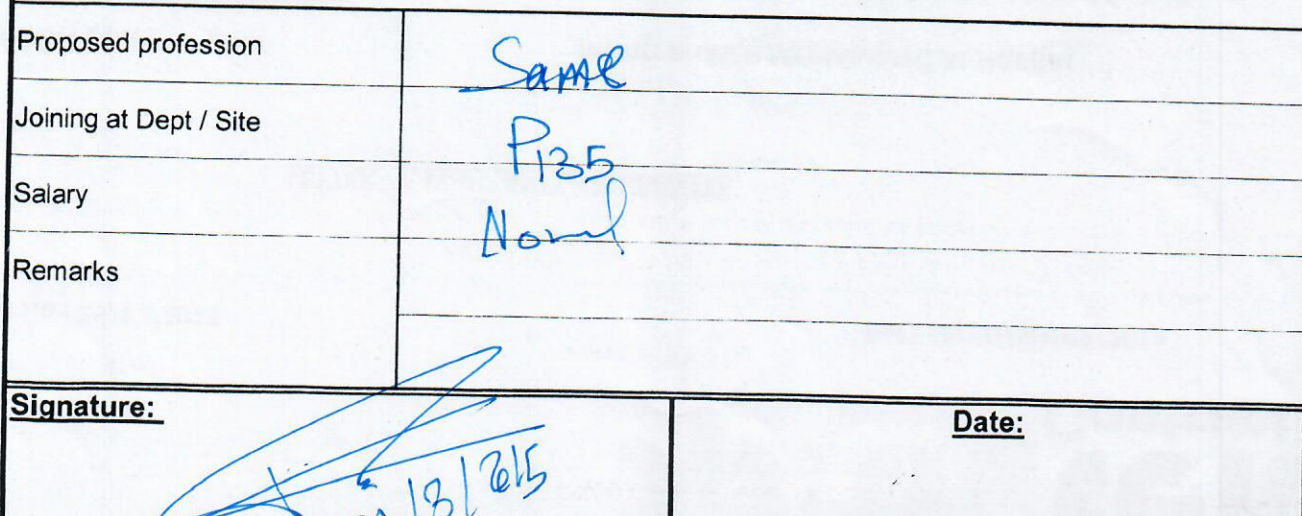 Proposed profession Same
Joining at Dept / Site P135
Salary
Remarks
Signature: Date: